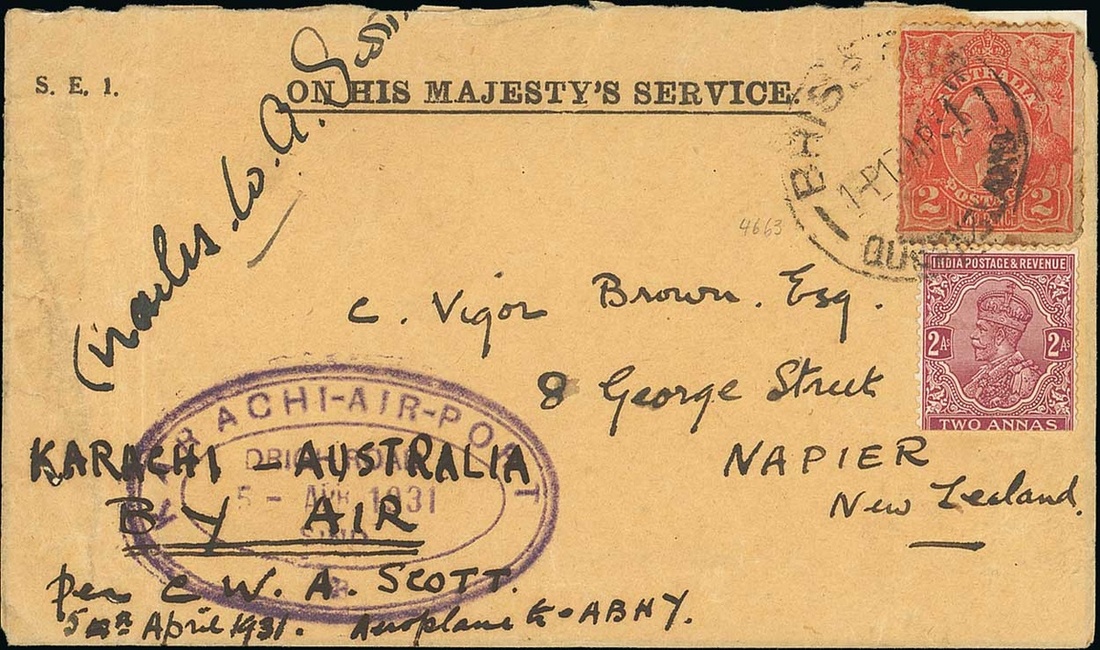 S. E. 1.
ON HIS MAJESTY'S SERVICE
Charles. W. A. Scott
AUSTRALIA
2 POSTAGE 2
BRISBANE
QUEENSLAND
4663
INDIA POSTAGE & REVENUE
2As 2As
TWO ANNAS
C. Vigor Brown. Esq.
8 George Street
NAPIER
New Zealand.
KARACHI-AIR-PORT
DRIGH ROAD
5 - APR 1931
SIND
KARACHI - AUSTRALIA
BY AIR
per C. W. A. SCOTT.
5 April 1931. Aeroplane G-ABHY.